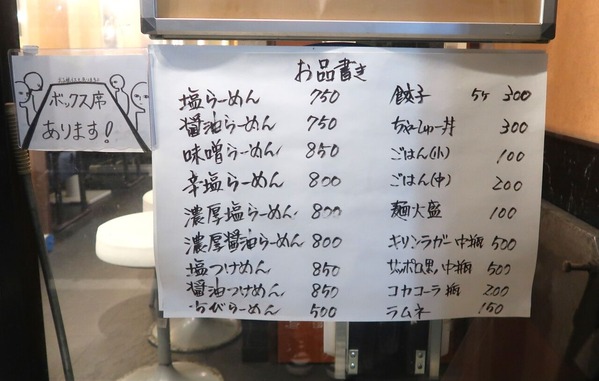 ボックス席
あります!
お品書き
塩らーめん 750
醤油らーめん 750
味噌らーめん 850
辛塩らーめん 800
濃厚塩らーめん 800
濃厚醤油らーめん 800
塩つけめん 850
醤油つけめん 850
ちびらーめん 500
餃子 5ケ 300
ちゃーしゅー丼 300
ごはん(小) 100
ごはん(中) 200
麺大盛 100
キリンラガー中瓶 500
サッポロ黒ラベル中瓶 500
コカコーラ瓶 200
ラムネ 150